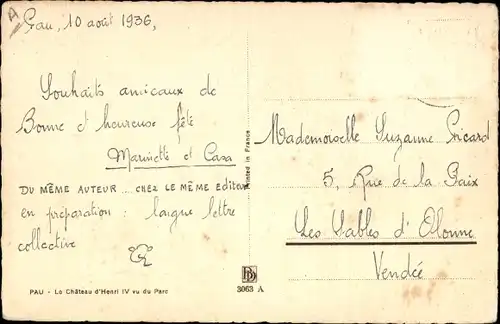 Pau, 10 août 1936,
Souhaits amicaux de
Bonne et heureuse fête
Marinette et Casa
DU MÊME AUTEUR ... CHEZ LE MÊME Editeur
en préparation : longue lettre
collective
PAU - Le Château d'Henri IV vu du Parc
Printed in France
3063 A
Mademoiselle Suzanne Picard
5, Rue de la Paix
Les Sables d'Olonne
Vendée